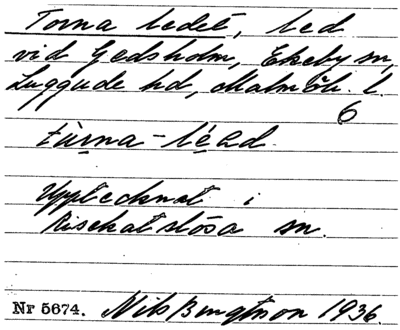 Torna ledet, led
vid Gedsholm, Ekeby sn,
Luggude hd, Malmöh. l.
6
tùrna-léad.
Upptecknat i
Risekatslösa sn.
Nr 5674. Nils Bengtsson 1936.